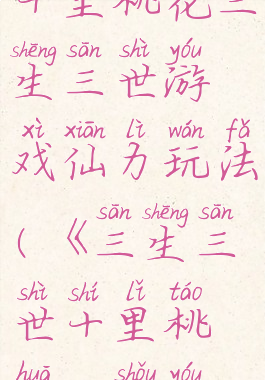 十里桃花三
shēng sān shì yóu
生三世游
xì xiān lì wán fǎ
戏仙力玩法
sān shēng sān
(《三生三
shì shí lǐ táo
世十里桃
huā shǒu yóu